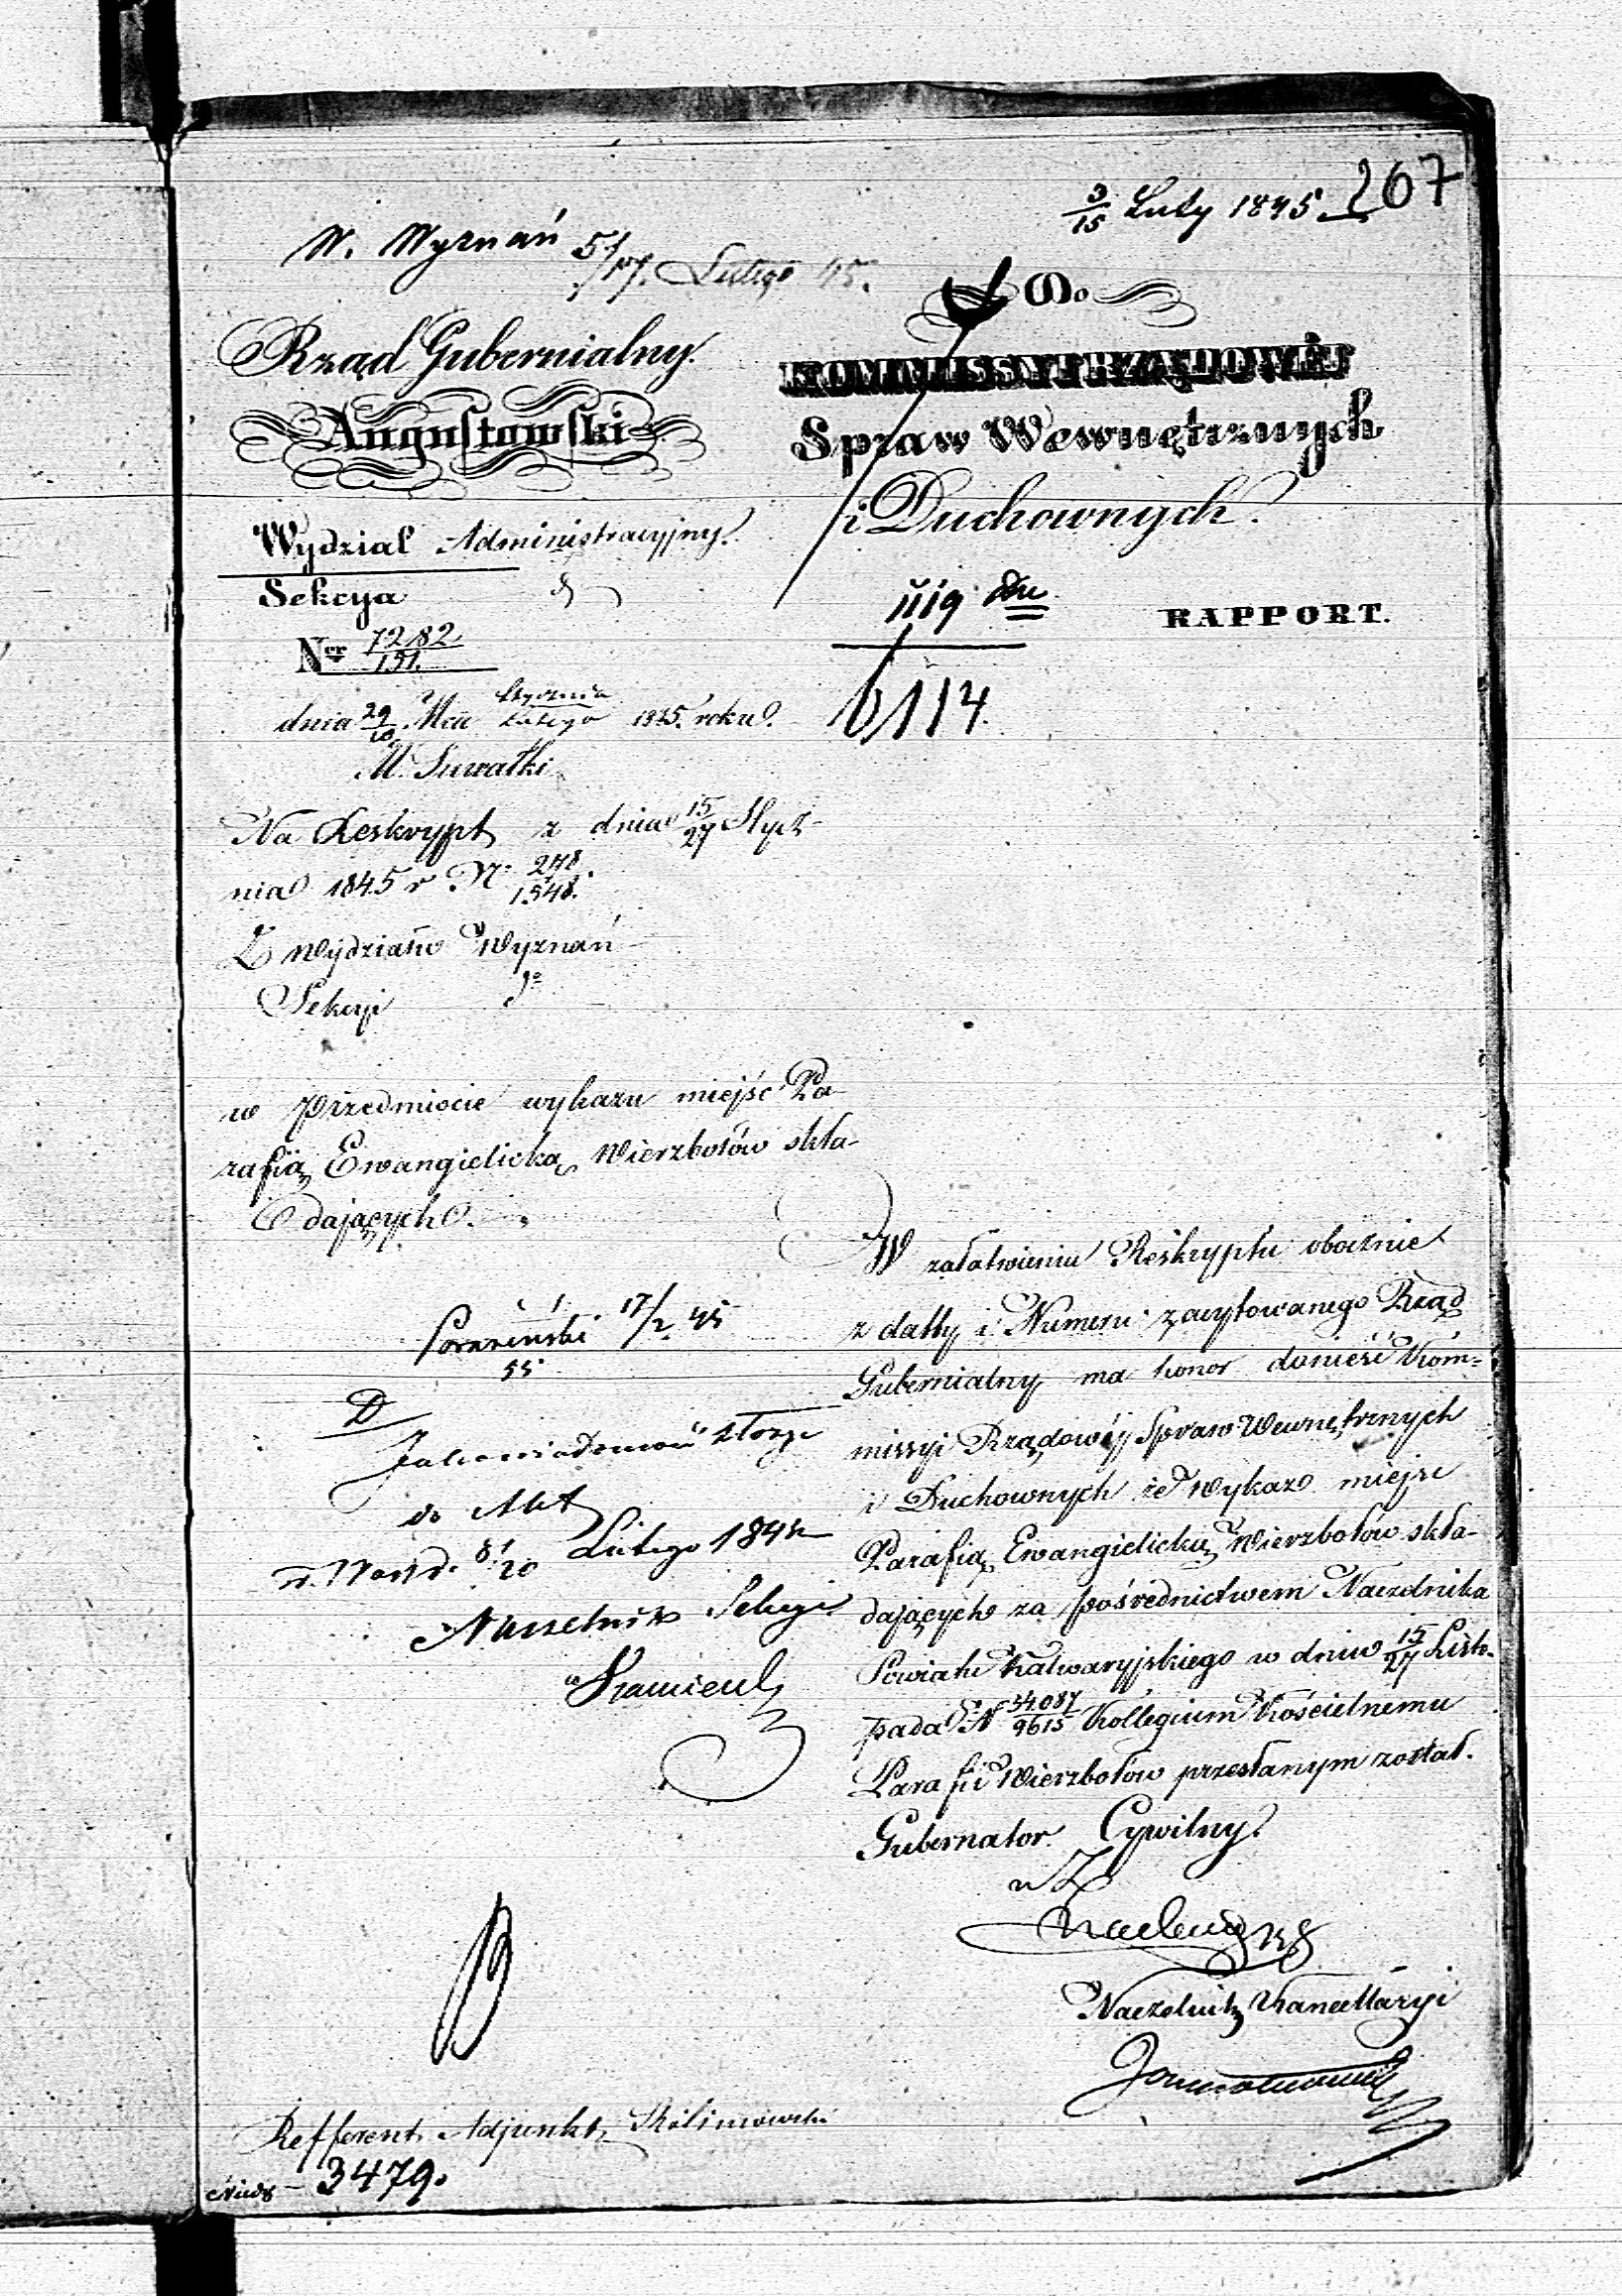 3/15 Luty 1845
267
W. Wyznań 5/17. Lutego 45.
Rząd Gubernialny
Augustowski
Do
KOMMISSYI RZĄDOWÉJ
Spraw Wewnętrznych
i Duchownych.
Wydział Administracyjny.
Sekcya
Ner 7282/151.
1119
RAPPORT.
6114.
dnia 29/10 Mca Stycznia/Lutego 1845. roku.
M. Suwałki
Na Reskrypt z dnia 15/27 Stycz-
nia 1845 r N. 248/1548.
Z Wydziału Wyznań
Sekcyi
w Przedmiocie wykazu miejsc Pa-
rafią Ewangielicką Wierzbołów skła-
dających.
17/2 45
55
D
do Akt
8/20 Lutego 184
Naczelnik Sekcyi
W załatwieniu Reskryptu obocznie
z datty i Numeru zacytowanego Rząd
Gubernialny ma honor donieść Kom-
missyi Rządowéj Spraw Wewnętrznych
i Duchownych że Wykaz miejsc
Parafią Ewangielicką Wierzbołów skła-
dających za pośrednictwem Naczelnika
Powiatu Kalwaryjskiego w dniu 15/27 Listo-
pada N 34.087/9615 Kollegium Kościelnemu
Parafii Wierzbołów przesłanym został.
Gubernator Cywilny
w Z
Naczelnik Kancellaryi
Refferent Adjunkt Skolimowski
3479.